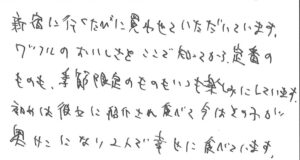 新宿に行くたびに買わせていただいています。
ワッフルのおいしさをここで知ってから、定番の
ものも、季節限定のものもいつも楽しみにしています。
初めは彼女に紹介され食べて今はその子が
奥さんになり2人で幸せに食べています。